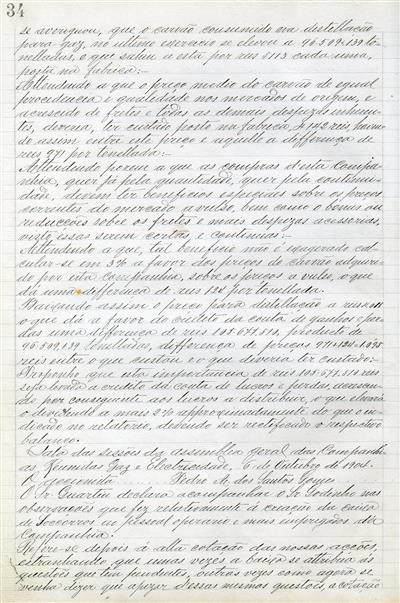 34
se averiguou, que o carvão consumido na distillação
para gaz, no ultimo exercicio se elevou a 96:509,139 to-
nelladas, o que sahiu a esta por reis 5113 cada uma,
posta na fabrica:-
Attendendo a que o preço medio do carvão de egual
procedencia e qualidade nos mercados de origem, e
accrescido de fretes e todas as demais despezas inheren-
tes, deveria ter custado posto na fabrica, reis, haven-
do assim entre este preço e aquelle a differença de
reis 971 por tonellada:-
Attendendo porem a que as compras d'esta Compa-
nhia, quer já pela quantidade, quer pela continui-
dade, devem ter beneficios especiaes sobre os preços
correntes do mercado avulso, bem como o bonus ou
reducções sobre os fretes e mais despezas acessorias,
visto essas serem certas e continuas:-
Attendendo a que, tal beneficio não é exagerado cal-
cular-se em 3% a favor dos preços do carvão adquiri-
do por esta Companhia, sobre os preços a vulso, o que
dá uma differença de reis 124 por tonellada.
Baixando assim o preço para distillação a reis
o que dá a favor do credito da conta de ganhos e per-
das uma differença de reis 105.677,510, producto de
96.509,139 tonelladas, differença de preços 971+124=1.095
reis entre o que custou e o que deveria ter custado:-
Proponho que esta importancia de reis 105.677,510 reis
seja levada a credito da conta de lucros e perdas, accusan-
do por conseguinte aos lucros a distribuir, o que elevaria
o dividendo a mais 2% approximadamente do que o in-
dicado no relatorio, devendo ser rectificado o respectivo
balanço.
Sala das sessões da assemblea geral das Companhi-
as Reunidas Gaz e Electricidade, 6 de Outubro de 1904.
O accionista Pedro A. dos Santos Gomes
O Sr. Quartin declara acompanhar o Sr. Godinho nas
observações que fez relativamente á creação da caixa
de Soccorros ao pessoal operario e mais empregados da
Companhia.
Refere-se depois á alta cotação das nossas acções,
estranhando que umas vezes a baixa se attribua ás
questões que tem pendentes, outras vezes como agora se
venha dizer que apezar d'essas mesmas questões, a cotação